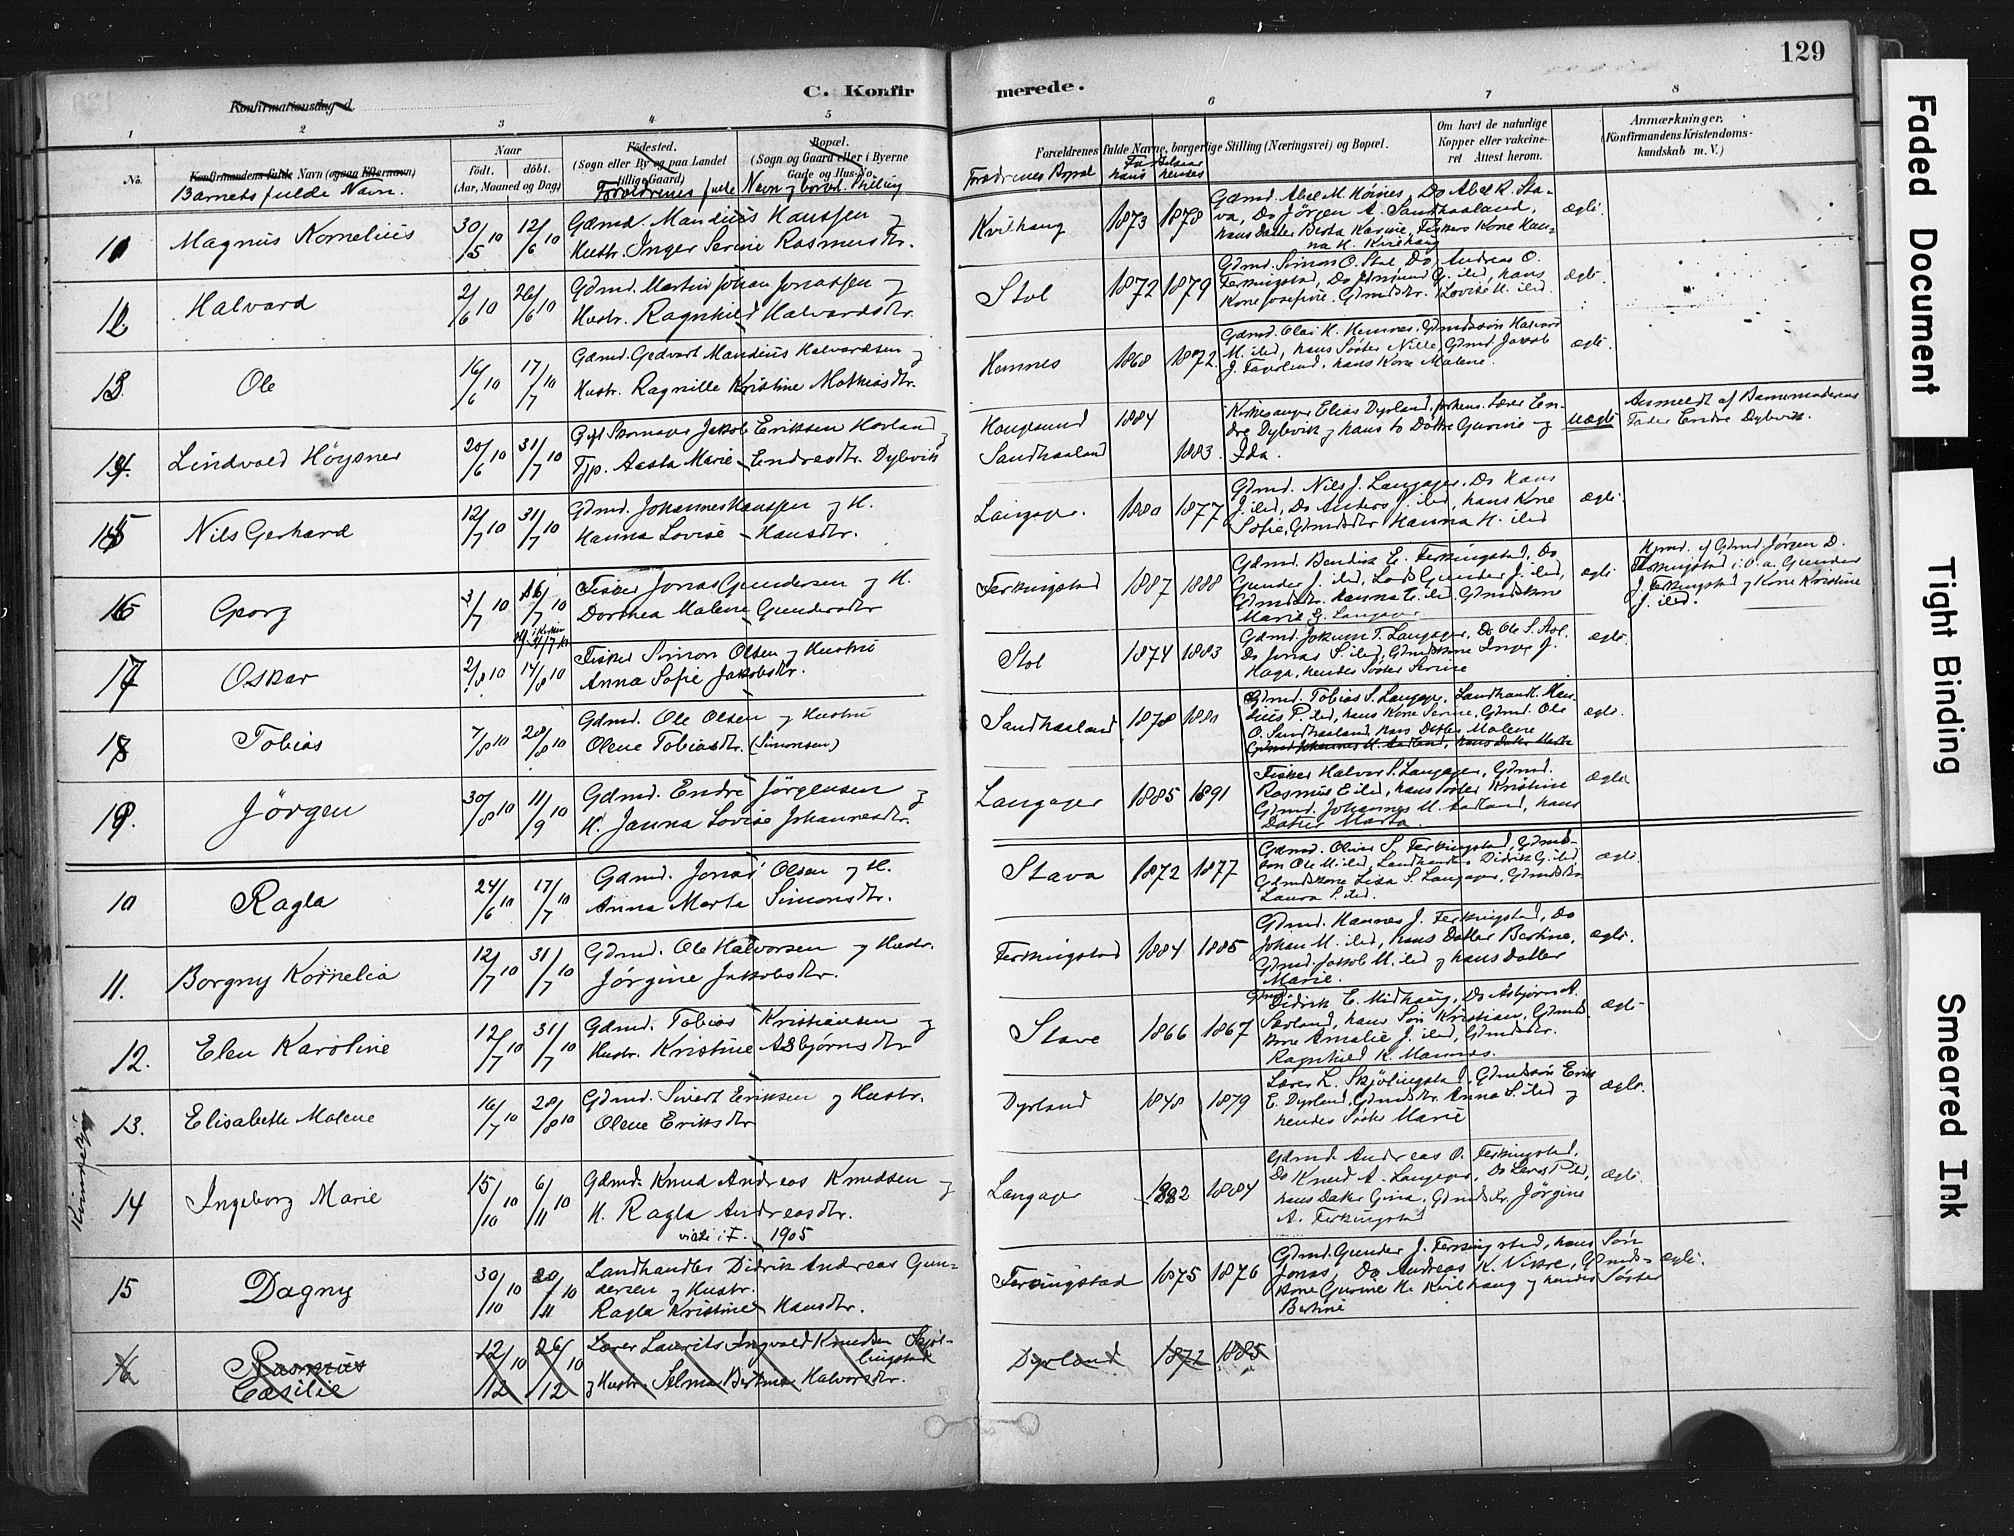 129
C. Konfir merede.
Konfirmationsdag d.
1 2 3 4 5 6 7 8
No.
Konfirmandens fulde Navn (ogsaa Efternavn)
Barnets fulde Navn.
Naar
Födt. döbt.
(Aar, Maaned og Dag)
Födested.
(Sogn eller By og paa Landet
tillige Gaard)
Bopæl.
(Sogn og Gaard eller i Byerne
Gade og Hus-No.
Forældrenes fulde Navn og borgl. Stilling
Forældrenes fulde Navne, borgerlige Stilling (Næringsvei) og Bopæl.
Forældrenes Bopæl
hans hendes
Om havt de naturlige
Kopper eller vakcine-
ret Attest herom.
Anmærkninger,
(Konfirmandens Kristendoms-
kundskab m. V.)
11 Magnus Kornelius 30/5 10 12/6 10
Gdmd. Mandius Hanssen og
Hustr. Inger Serine Rasmusdtr.
Kvilhaug 1873 1878
Gdmd. Abel M. Hömnes, Do Abel R. Sta-
va, Do Jörgen A. Sandhaaland,
hans Datter Berta Karine, Fiskers Kone Han-
na H. Kvilhaug
ægte.
12 Halvard 2/6 10 26/6 10
Gdmd. Martin Johan Jonassen og
Hustr. Ragnhild Halvardsdtr.
Stol 1872 1879
Gdmd. Simon O. Stol, Do Andreas O.
Ferkingstad, Do G. ibd, hans
Kone Josefine, Gdmdsdtr. Lovise H. ibd.
ægte.
13 Ole 16/6 10 17/7 10
Gdmd. Gedvart Mandius Halvardsen og
Hustr. Ragnille Kristine Mathiasdtr.
Hemnes 1868 1872
Gdmd. Olai H. Hemnes, Gdmdssön Halvard
M. ibd, hans Söster Nille, Gdmd. Jakob
J. Fagerland, hans Kone Malene.
ægte.
14 Lindvald Höysner 20/6 10 31/7 10
Gift Skomager Jakob Eriksen Hovland og
Tjp. Aasta Marie Endresdtr. Dybvik
Haugesund 1884
Sandhaaland 1883
Kirkesanger Elias Dyrland, forhens. Lærer En-
dre Dybvik og hans to Døtre Gurine og
Ida.
uægte
Anmeldt af Barnemoderens
Fader Endre Dybvik.
15 Nils Gerhard 12/7 10 31/7 10
Gdmd. Johannes Hanssen og H.
Hanna Lovise Hansdtr.
Langager. 1880 1877
Gdmd. Nils J. Langager, Do Hans
J. ibd, Do Anders J. ibd, hans Kone
Sofie, Gdmdsdtr Hanna H. ibd
ægte.
16 Georg 3/7 10 16/7 10
Fisker Jonas Gundersen og H.
Dorthea Malene Gundersdtr
Ferkingstad 1887 1888
Gdmd. Bendix E. Ferkingstad, Do
Gunder J. ibd, Lods Gunder J. ibd,
Gdmdsdtr. Hanna E. ibd, Gdmdskone
Marie G. Langager
ægte.
Hjmd. af Gdmd Jörgen D.
Ferkingstad i O. a. Gunder
J. Ferkingstad og Kone Kristine
J. ibd.
17 Oskar 2/8 10 14/8 10
Fisker Simon Olsen og Hustru
Anna Sofie Jakobsdtr.
Stol 1874 1883
Gdmd. Jokum T. Langager, Do Ole S. Stol.
Do Jonas S. ibd, Gdmdskone Inger J.
Haga, hendes Söster Serine
ægte.
18 Tobias 7/8 10 28/8 10
Gdmd. Ole Olsen og Hustru
Olene Tobiasdtr. (Simonsen)
Sandhaaland 1878
Gdmd. Tobias S. Langager, Landhandl. Han-
sius P. ibd, hans Kone Serine, Gdmd. Ole
O. Sandhaaland, hans Datter Malene
Gdmd Johannes M. Aadland, hans Datter Marta
ægte.
19 Jörgen 30/8 10 11/9 10
Gdmd. Endre Jörgensen og
H. Janna Lovise Johannesdtr.
Langager 1885 1891
Fisker Halvor S. Langager, Gdmd.
Rasmus E ibd, hans Söster Kristine
Gdmd. Johannes M. Aadland, hans
Datter Marta.
ægte
10 Ragla 24/6 10 17/7 10
Gdmd. Jonas Olsen og H.
Anna Marta Simonsdtr.
Stava 1872 1877
Gdmd. Oliver S. Ferkingstad, Gdmds-
sön Ole M. ibd, Landhandler Didrik G. ibd,
Gdmdskone Lisa S. Langager, Gdmdsdtr
Laura S. ibd.
ægte.
11. Borgny Kornelia 12/7 10 31/7 10
Gdmd. Ole Halvorsen og Hustr.
Jørgine Jakobsdtr.
Ferkingstad 1884 1885
Gdmd. Hannes J. Ferkingstad, Do
Johan M. ibd, hans Datter Bertine,
Gdmd. Jakob M. ibd og hans Datter
Marie.
ægte.
12. Elen Karoline 12/7 10 31/7 10
Gdmd. Tobias Kristiansen og
Hustr. Kristine Asbjørnsdtr
Stave 1866 1867
Gdmd Didrik E. Midhaug, Do Asbjørn A.
Sævland, hans Sön Kristian, Gdmds
kone Amalie J. ibd, Gdmdsdtr.
Ragnhild K. Mannes.
ægte
Kvinnekjøn
13. Elisabeth Malene 16/7 10 28/8 10
Gdmd. Sivert Eriksen og Hustr.
Olene Eriksdtr
Dyrland 1848 1879
Lærer L. Skjölingstad, Gdmdssön Erik
E. Dyrland, Gdmdsdtr. Anna S. ibd og
hendes Söster Marie
ægte.
14 Ingeborg Marie 15/10 10 6/11 10
Gdmd. Knud Andreas Knudsen og
H. Ragla Andreasdtr.
viet i F. 1905
Langager 1882 1884
Gdmd. Andreas O. Ferkingstad,
Do Knud A. Langager, Do Lars P. ibd,
hans Datter Gina, Gdmdsdtr. Jörgine
A. Ferkingstad
ægte.
15 Dagny 30/10 10 20/11 10
Landhandler Didrik Andreas Gun-
dersen og Hustr.
Ragla Kristine Hansdtr.
Ferkingstad 1875 1876
Gdmd. Gunder J. Ferkingstad, hans Sön
Jonas, Do Andreas K. Vikre, Gdmds-
kone Gurine H. Kvilhaug og hendes Söster
Bertine
ægte.
16 Rasmus
Cæsilie 12/12 10 26/12 10
Lærer Laurits Ingvald Knudsen Skjöl-
lingstad
og Hustr. Selma Bertine Halvorsdtr.
Dyrland 1872 1885
Faded Document
Tight Binding
Smeared Ink